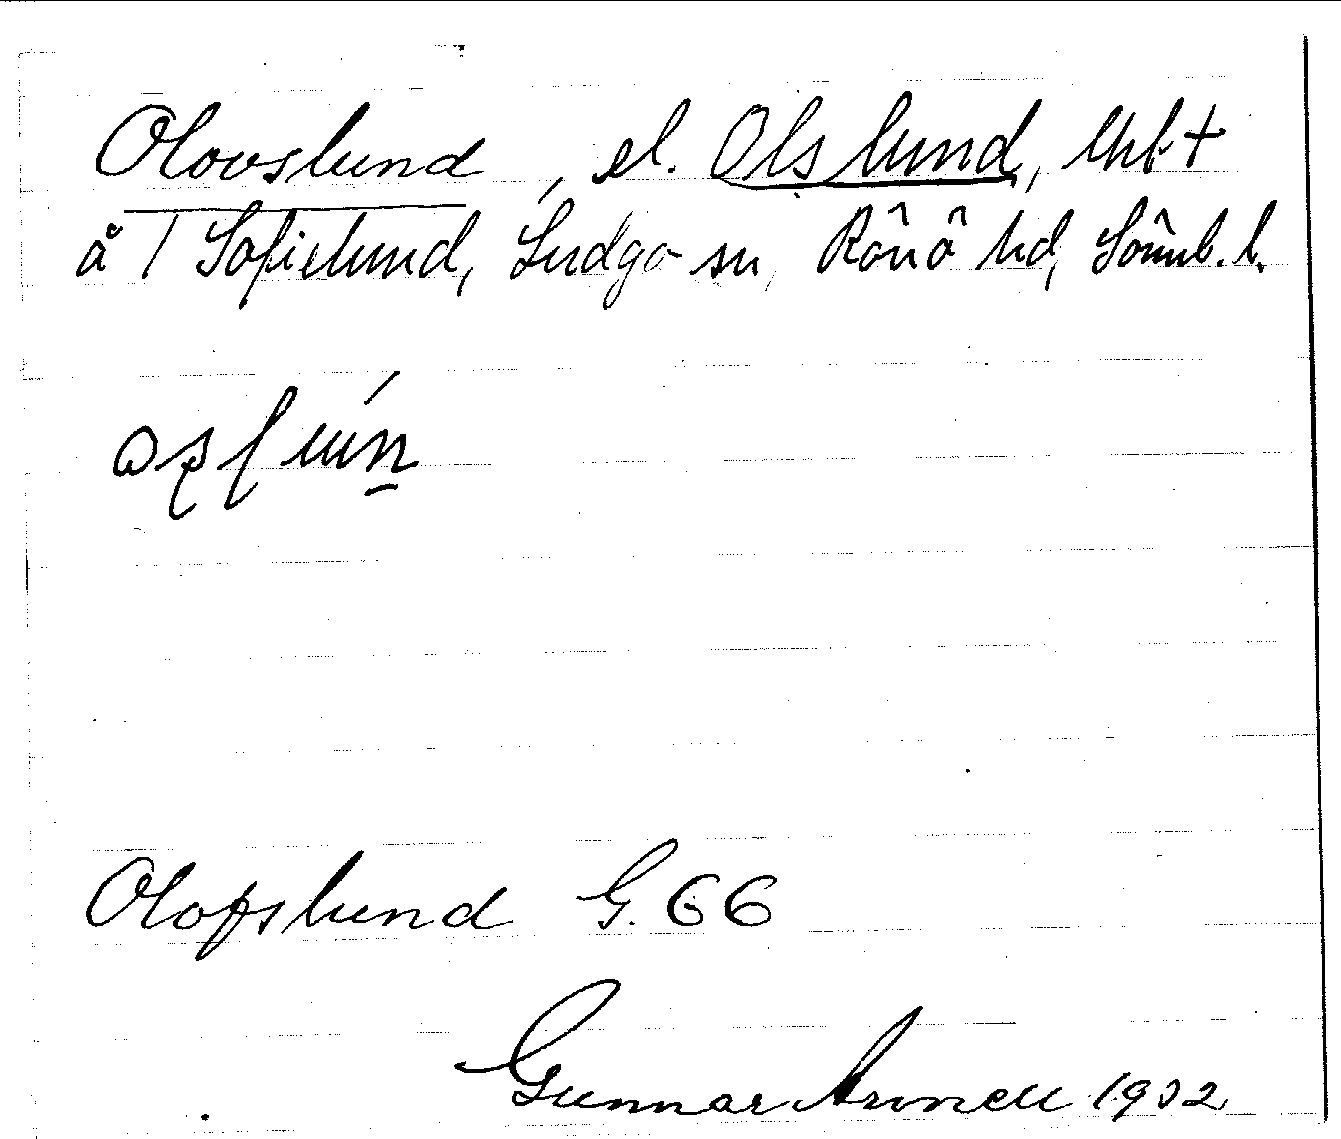 Olovslund, el. Olslund, lhl †
å 1 Sofielund, Ludgo sn, Rönö hd, Sörml. l.
Olofslund G. 66
Gunnar Arnell 1932